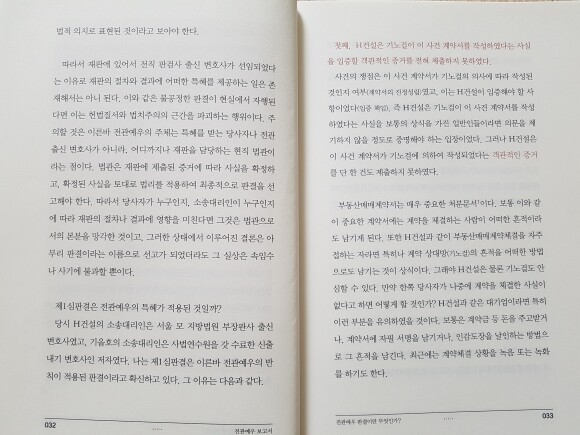 법적 의지로 표현된 것이라고 보아야 한다.
따라서 재판에 있어서 전직 판검사 출신 변호사가 선임되었다
는 이유로 재판의 절차와 결과에 어떠한 특혜를 제공하는 일은 존
재해서는 아니 된다. 이와 같은 불공정한 판결이 현실에서 자행된
다면 이는 헌법질서와 법치주의의 근간을 파괴하는 행위이다. 주
의할 것은 이른바 전관예우의 주체는 특혜를 받는 당사자나 전관
출신 변호사가 아니라, 어디까지나 재판을 담당하는 현직 법관이
라는 점이다. 법관은 재판에 제출된 증거에 따라 사실을 확정하
고, 확정된 사실을 토대로 법리를 적용하여 최종적으로 판결을 선
고해야 한다. 따라서 당사자가 누구인지, 소송대리인이 누구인지
에 따라 재판의 절차나 결과에 영향을 미친다면 그것은 법관으로
서의 본분을 망각한 것이고, 그러한 상태에서 이루어진 결론은 아
무리 판결이라는 이름으로 선고가 되었더라도 그 실상은 속임수
나 사기에 불과할 뿐이다.
제1심판결은 전관예우의 특혜가 적용된 것일까?
당시 H건설의 소송대리인은 서울 모 지방법원 부장판사 출신
변호사였고, 기을호의 소송대리인은 사법연수원을 갓 수료한 신출
내기 변호사인 저자였다. 나는 제1심판결은 이른바 전관예우의 반
칙이 적용된 판결이라고 확신하고 있다. 그 이유는 다음과 같다.
032
전관예우 보고서
첫째, H건설은 기노걸이 이 사건 계약서를 작성하였다는 사실
을 입증할 객관적인 증거를 전혀 제출하지 못하였다.
사건의 쟁점은 이 사건 계약서가 기노걸의 의사에 따라 작성된
것인지 여부(계약서의 진정성립)였고, 이는 H건설이 입증해야 할 사
항이었다(입증 책임). 즉 H건설은 기노걸이 이 사건 계약서를 작성
하였다는 사실을 보통의 상식을 가진 일반인들이라면 의문을 제
기하지 않을 정도로 증명해야 하는 입장이었다. 그러나 H건설은
이 사건 계약서가 기노걸에 의하여 작성되었다는 객관적인 증거
를 단 한 건도 제출하지 못하였다.
부동산매매계약서는 매우 중요한 처분문서이다. 보통 이와 같
이 중요한 계약서에는 계약을 체결하는 사람이 어떠한 흔적이라
도 남기게 된다. 또한 H건설과 같이 부동산매매계약체결을 자주
접하는 자라면 특히나 계약 상대방(기노걸)의 흔적을 어떠한 방법
으로도 남기는 것이 상식이다. 그래야 H건설은 물론 기노걸도 안
심할 수 있다. 만약 한쪽 당사자가 나중에 계약을 체결한 사실이
없다고 하면 어떻게 할 것인가? H건설과 같은 대기업이라면 특히
이런 부분을 유의하였을 것이다. 보통은 계약금 등 돈을 주고받거
나, 계약서에 자필 서명을 남기거나, 인감도장을 날인하는 방법으
로 그 흔적을 남긴다. 최근에는 계약체결 상황을 녹음 또는 녹화
를 하기도 한다.
전관예우 판결이란 무엇인가?
033